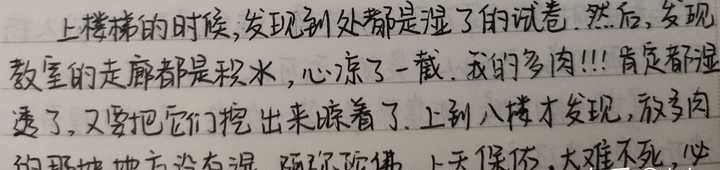 上楼梯的时候,发现到处都是湿了的试卷.然后,发现
教室的走廊都是积水,心凉了一截.我的多肉!!!肯定都湿
透了,又要把它们挖出来晾着了.上到八楼才发现,放多肉
的那块地方没有湿.阿弥陀佛,上天保佑,大难不死,必